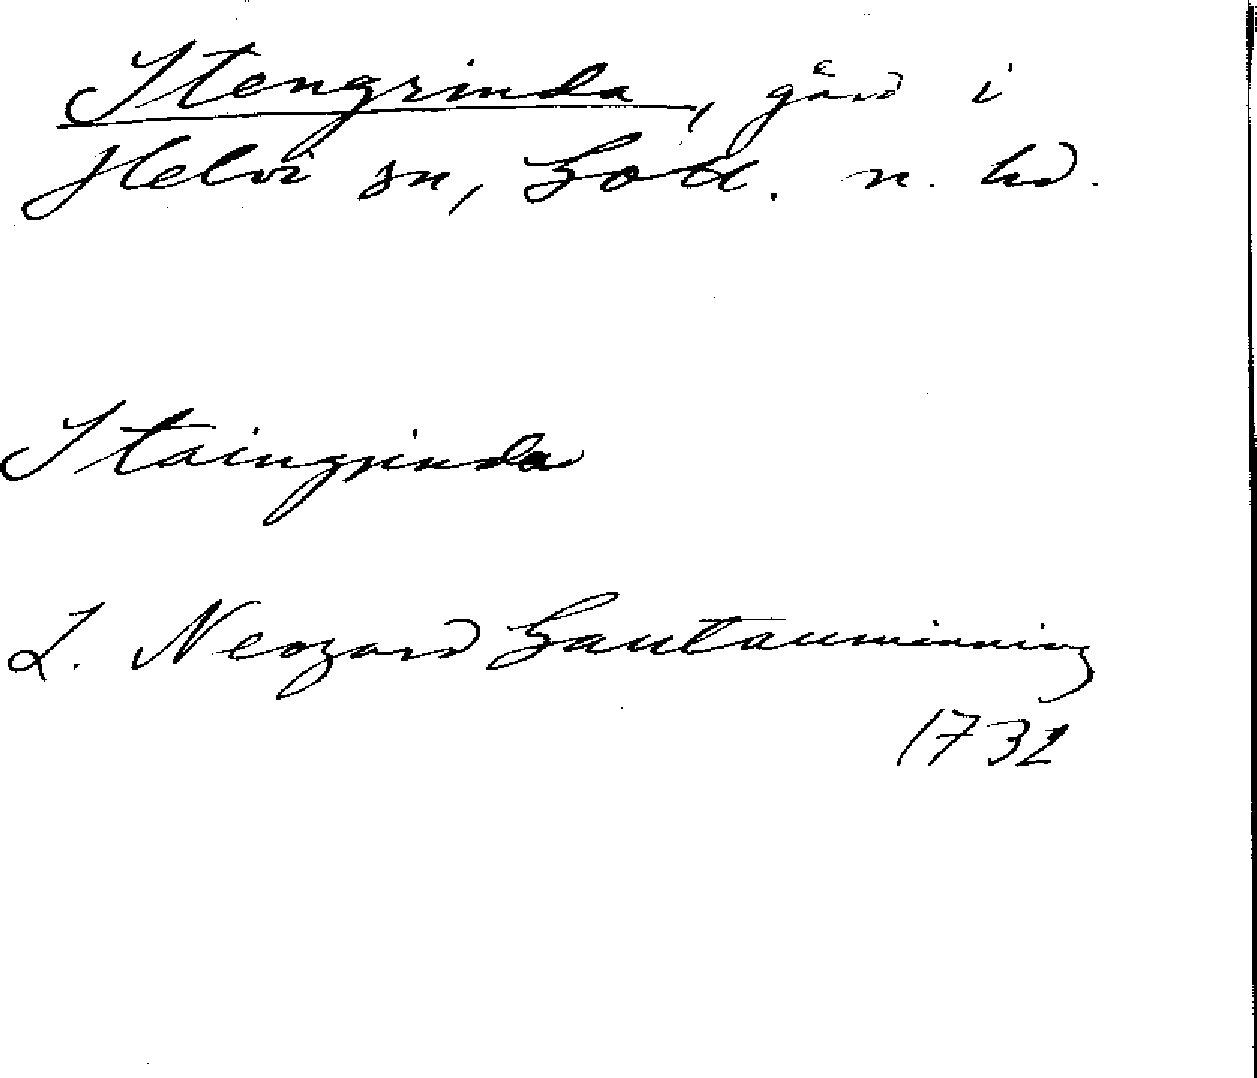 Stengrinda, gård i
Helvi sn, Gotl. n. hd.
Staingrinda
L. Neogard Gautauminning
1732